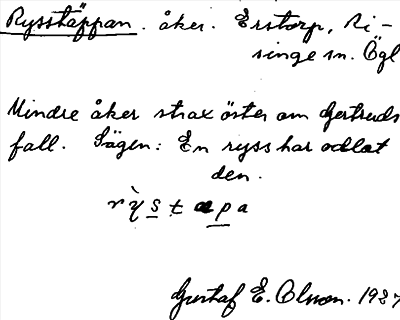 Rysstäppan. åker. Erstorp, Ri-
singe sn. Ögl
Mindre åker strax öster om Gertruds
fall. Sägen: En ryss har odlat
den.
rỳstæpa
Gustaf E. Olsson. 1927